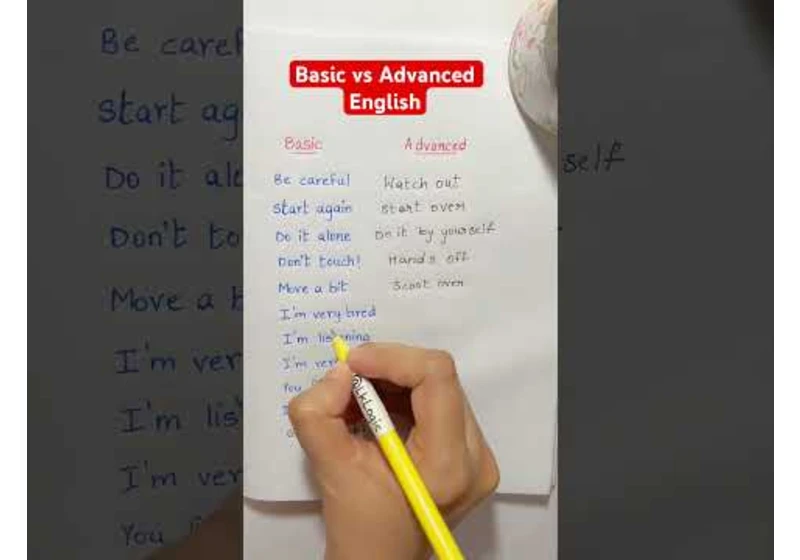 Basic vs Advanced
English
Basic Advanced
Be careful Watch out
Start again Start over
Do it alone Do it by yourself
Don't touch! Hands off
Move a bit Scoot over
I'm very tired
I'm listening
I'm ver
You
@LkLogic
Be caref
Start ag
Do it alo
Don't to
Move a b
I'm ver
I'm lis
I'm ver
You
self